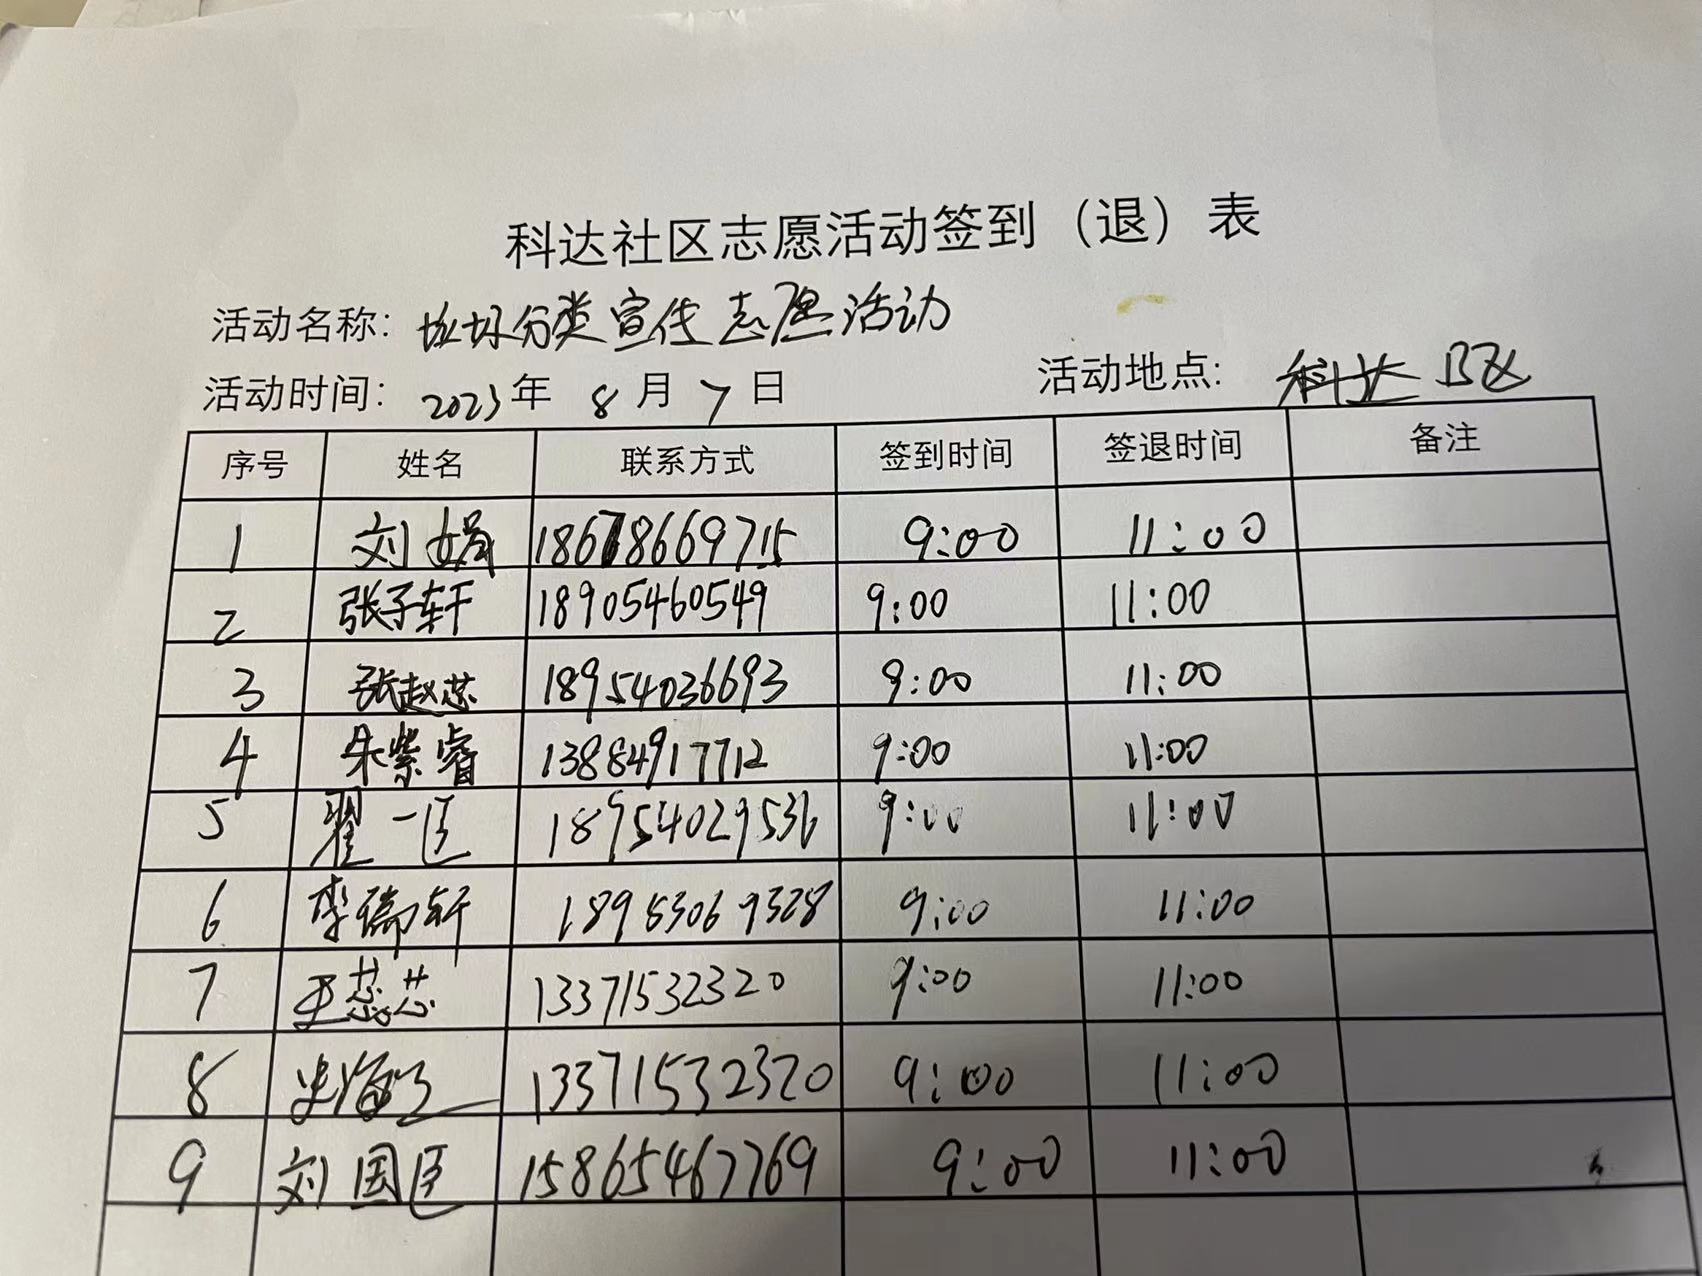 科达社区志愿活动签到（退）表
活动名称：垃圾分类宣传志愿活动
活动时间：2023年 8月7日 活动地点：科达B区
序号 姓名 联系方式 签到时间 签退时间 备注
1 刘娟 18678669715 9:00 11:00
2 张子轩 18905460549 9:00 11:00
3 张赵芯 18954036693 9:00 11:00
4 朱紫睿 13884917712 9:00 11:00
5 翟一臣 18954029536 9:00 11:00
6 李瑞轩 18953069328 9:00 11:00
7 王蕊芯 13371532320 9:00 11:00
8 13371532320 9:00 11:00
9 刘国臣 15865467769 9:00 11:00